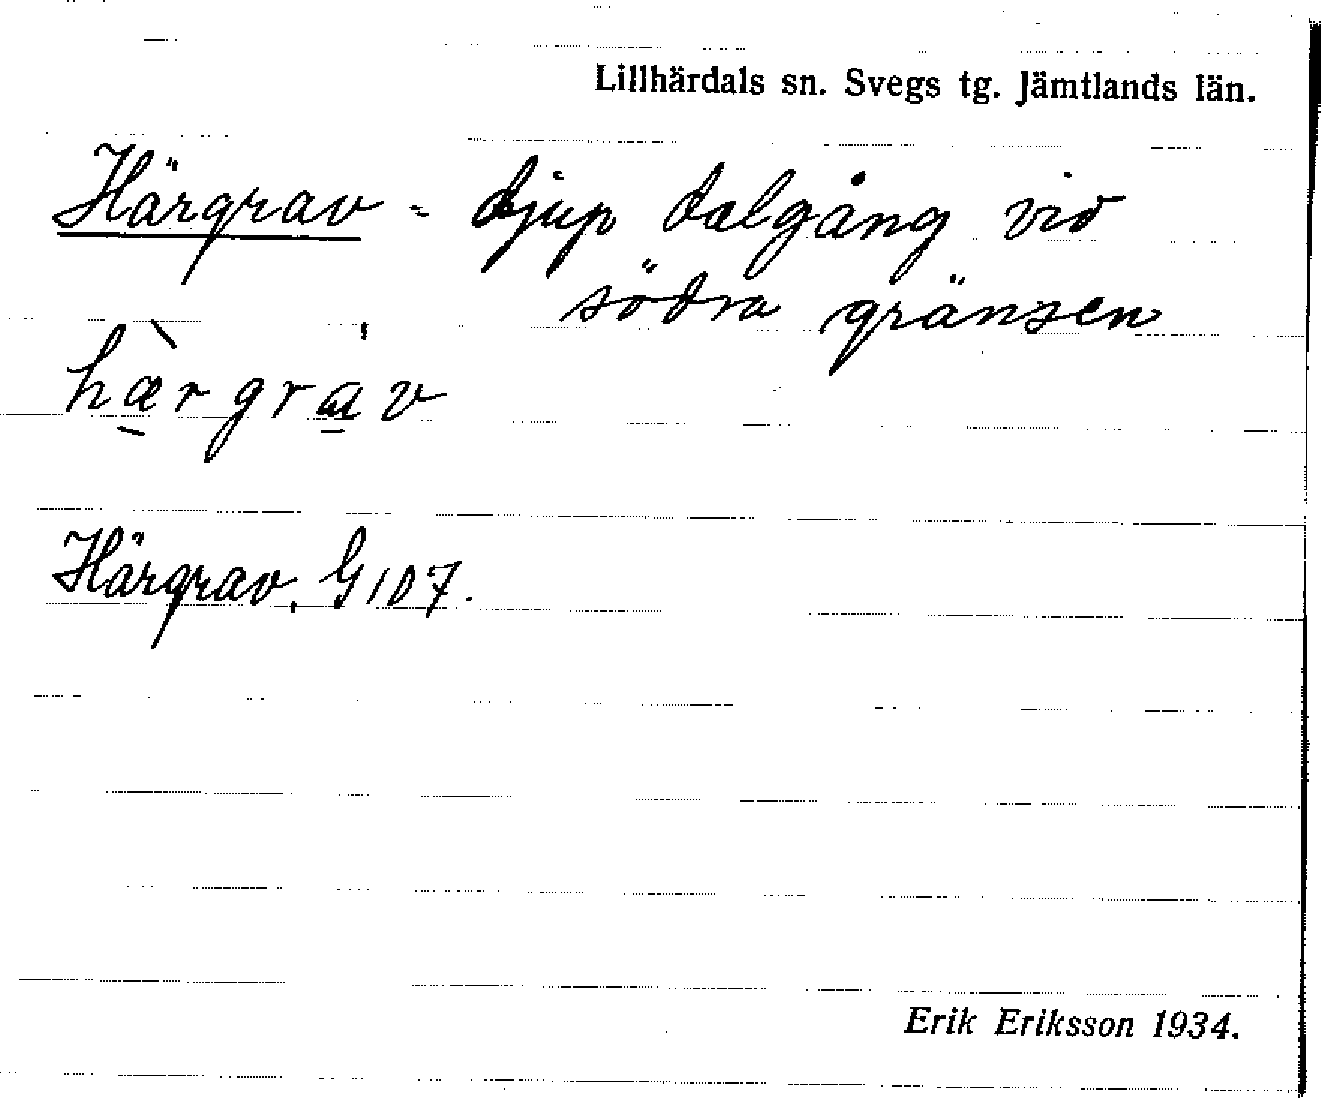 Lillhärdals sn. Svegs tg. Jämtlands län.
Härgrav = djup dalgång vid
södra gränsen
hæ̠̀rgra̠̍v
Härgrav, G 107.
Erik Eriksson 1934.